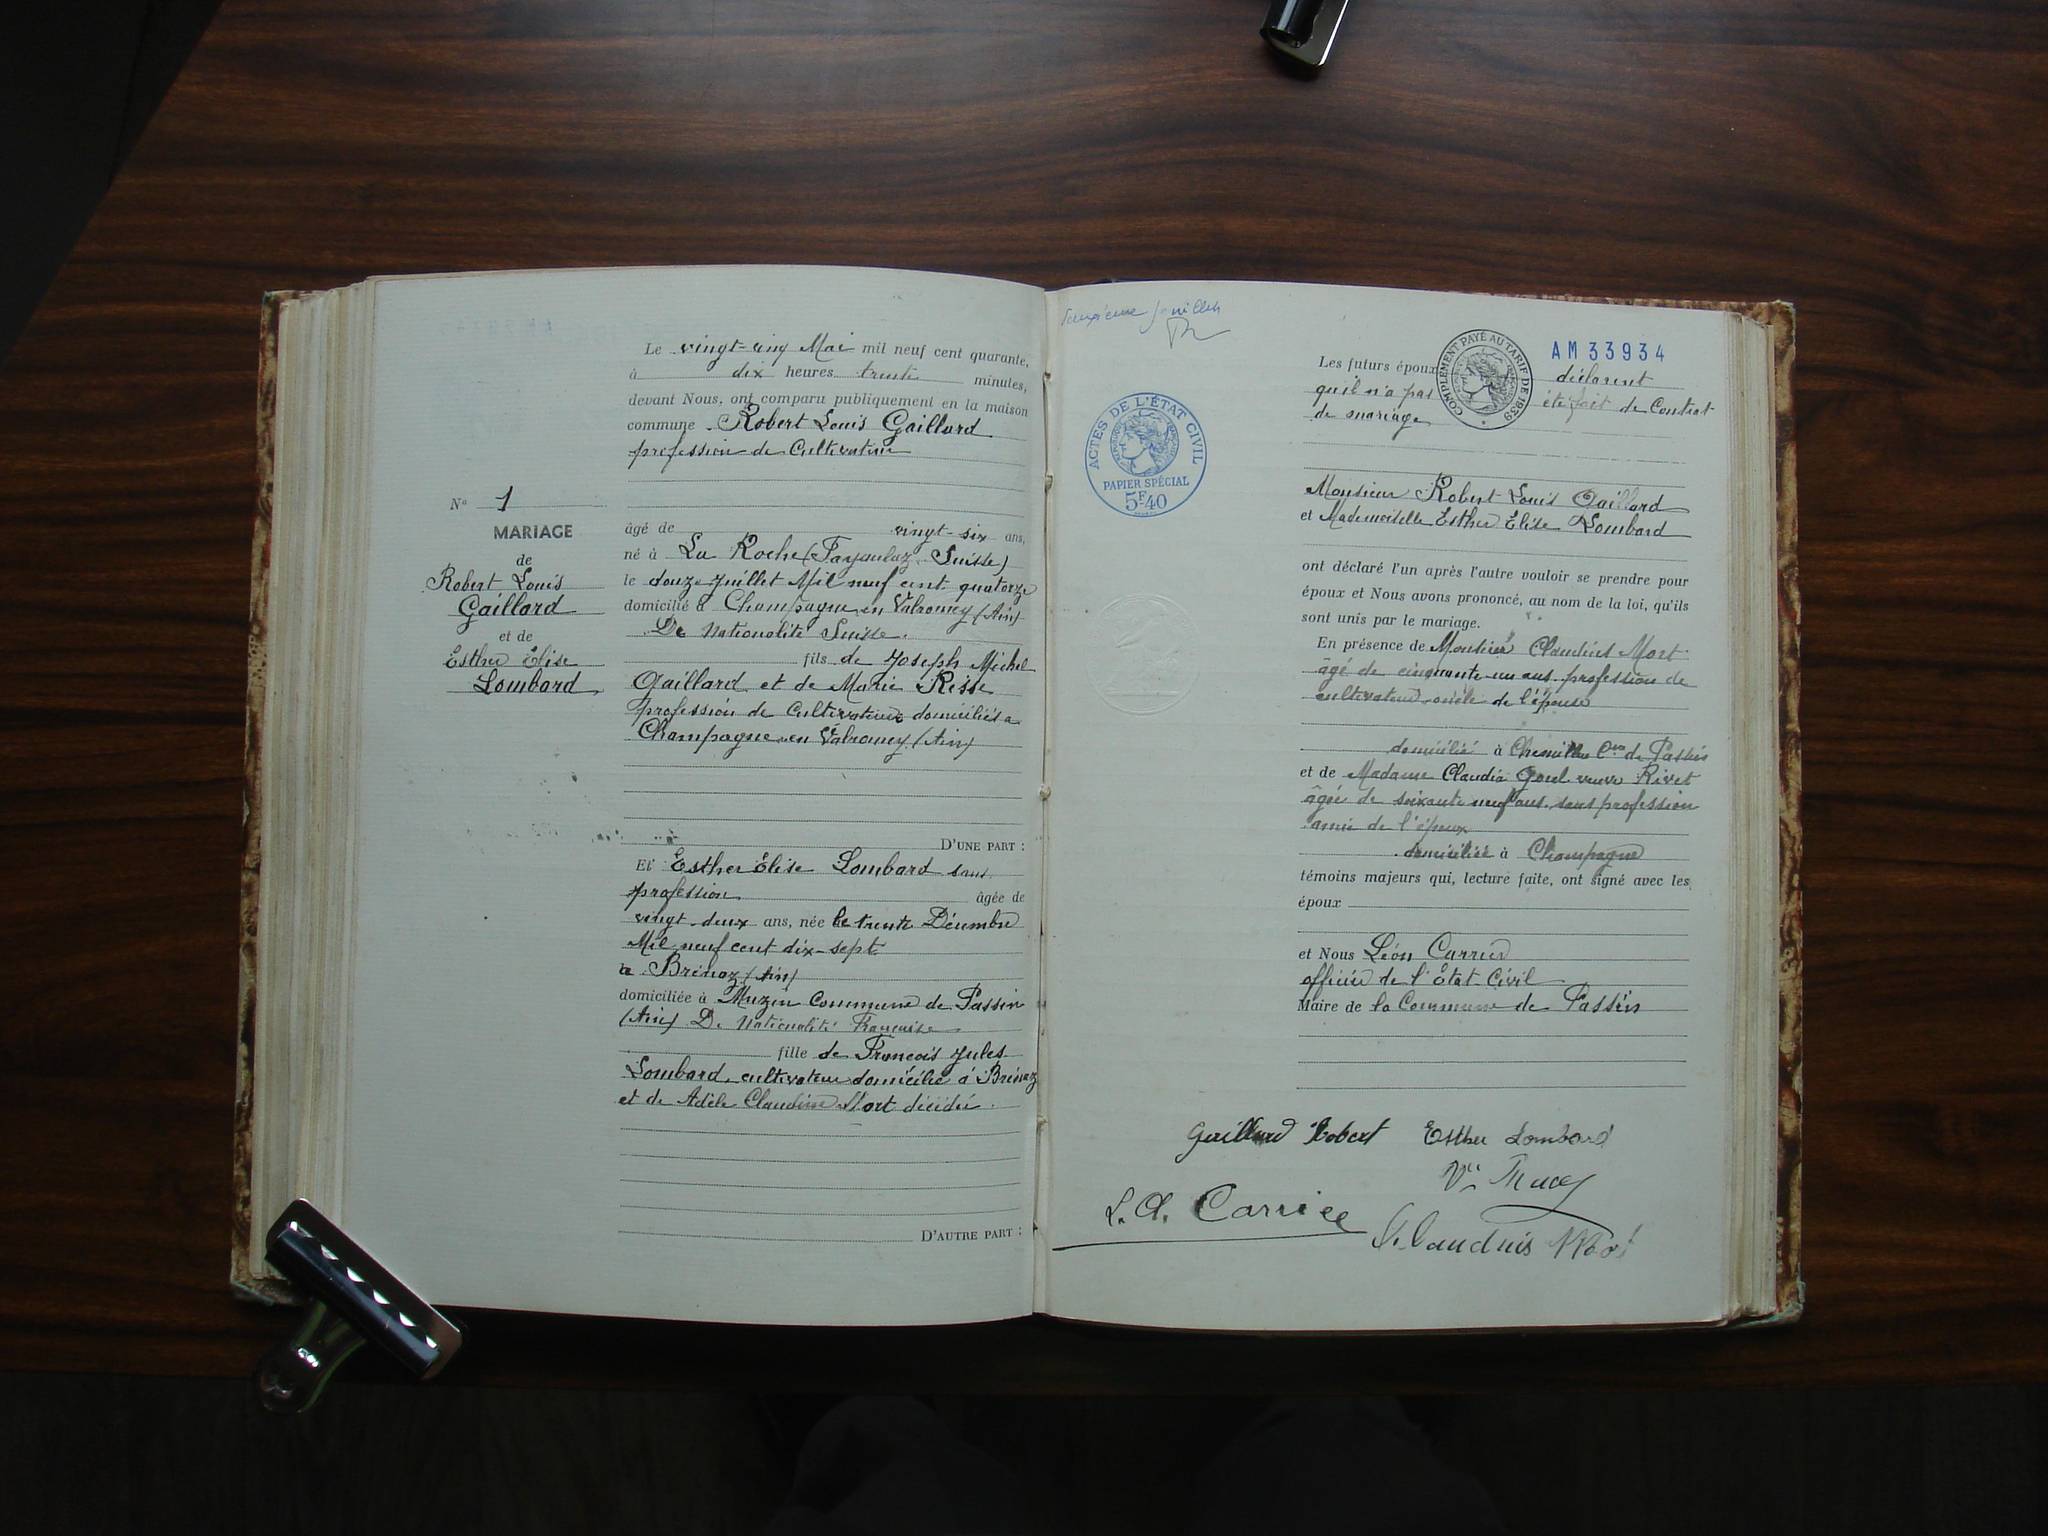 Le vingt-cinq Mai mil neuf cent quarante,
à dix heures trente minutes,
devant Nous, ont comparu publiquement en la maison
commune Robert Louis Gaillard
profession de Cultivateur
N° 1
MARIAGE
de
Robert Louis
Gaillard
et de
Esther Elise
Lombard
âgé de vingt-six ans,
né à La Roche ( Suisse)
le douze juillet Mil neuf cent quatorze
domicilié à Champagne en Valromey (Ain)
De Nationalité Suisse.
fils de Joseph Michel
Gaillard et de Marie Risse
profession de Cultivateurs domiciliés a
Champagne en Valromey (Ain)
D'UNE PART :
Et Esther Elise Lombard sans
profession âgée de
vingt-deux ans, née le trente Décembre
Mil neuf cent dix-sept
à Brénaz (Ain)
domiciliée à Muzin Commune de Passin
(Ain) De Nationalité Française
fille de François Jules
Lombard, cultivateur domicilié à Brénaz
et de Adèle Claudine Mort décédée.
D'AUTRE PART :
feuillet
ACTES DE L'ÉTAT CIVIL
PAPIER SPÉCIAL
5F40
COMPLÉMENT PAYÉ AU TARIF DE 1939
AM 33934
Les futurs époux déclarent
qu'il n'a pas été fait de Contrat
de mariage
Monsieur Robert Louis Gaillard
et Mademoiselle Esther Elise Lombard
ont déclaré l'un après l'autre vouloir se prendre pour
époux et Nous avons prononcé, au nom de la loi, qu'ils
sont unis par le mariage.
En présence de Monsieur Claudius Mort
âgé de cinquante-un ans profession de
cultivateur oncle de l'épouse
domicilié à Chemillieu Cne de Passin
et de Madame Claudia veuve Rivet
âgée de soixante neuf ans, sans profession
amie de l'époux
domiciliée à Champagne
témoins majeurs qui, lecture faite, ont signé avec les
époux
et Nous Léon Carrier
officier de l'Etat-Civil
Maire de la Commune de Passin
Gaillard Robert Esther Lombard
Ve
L. A. Carrier
Claudius Mort